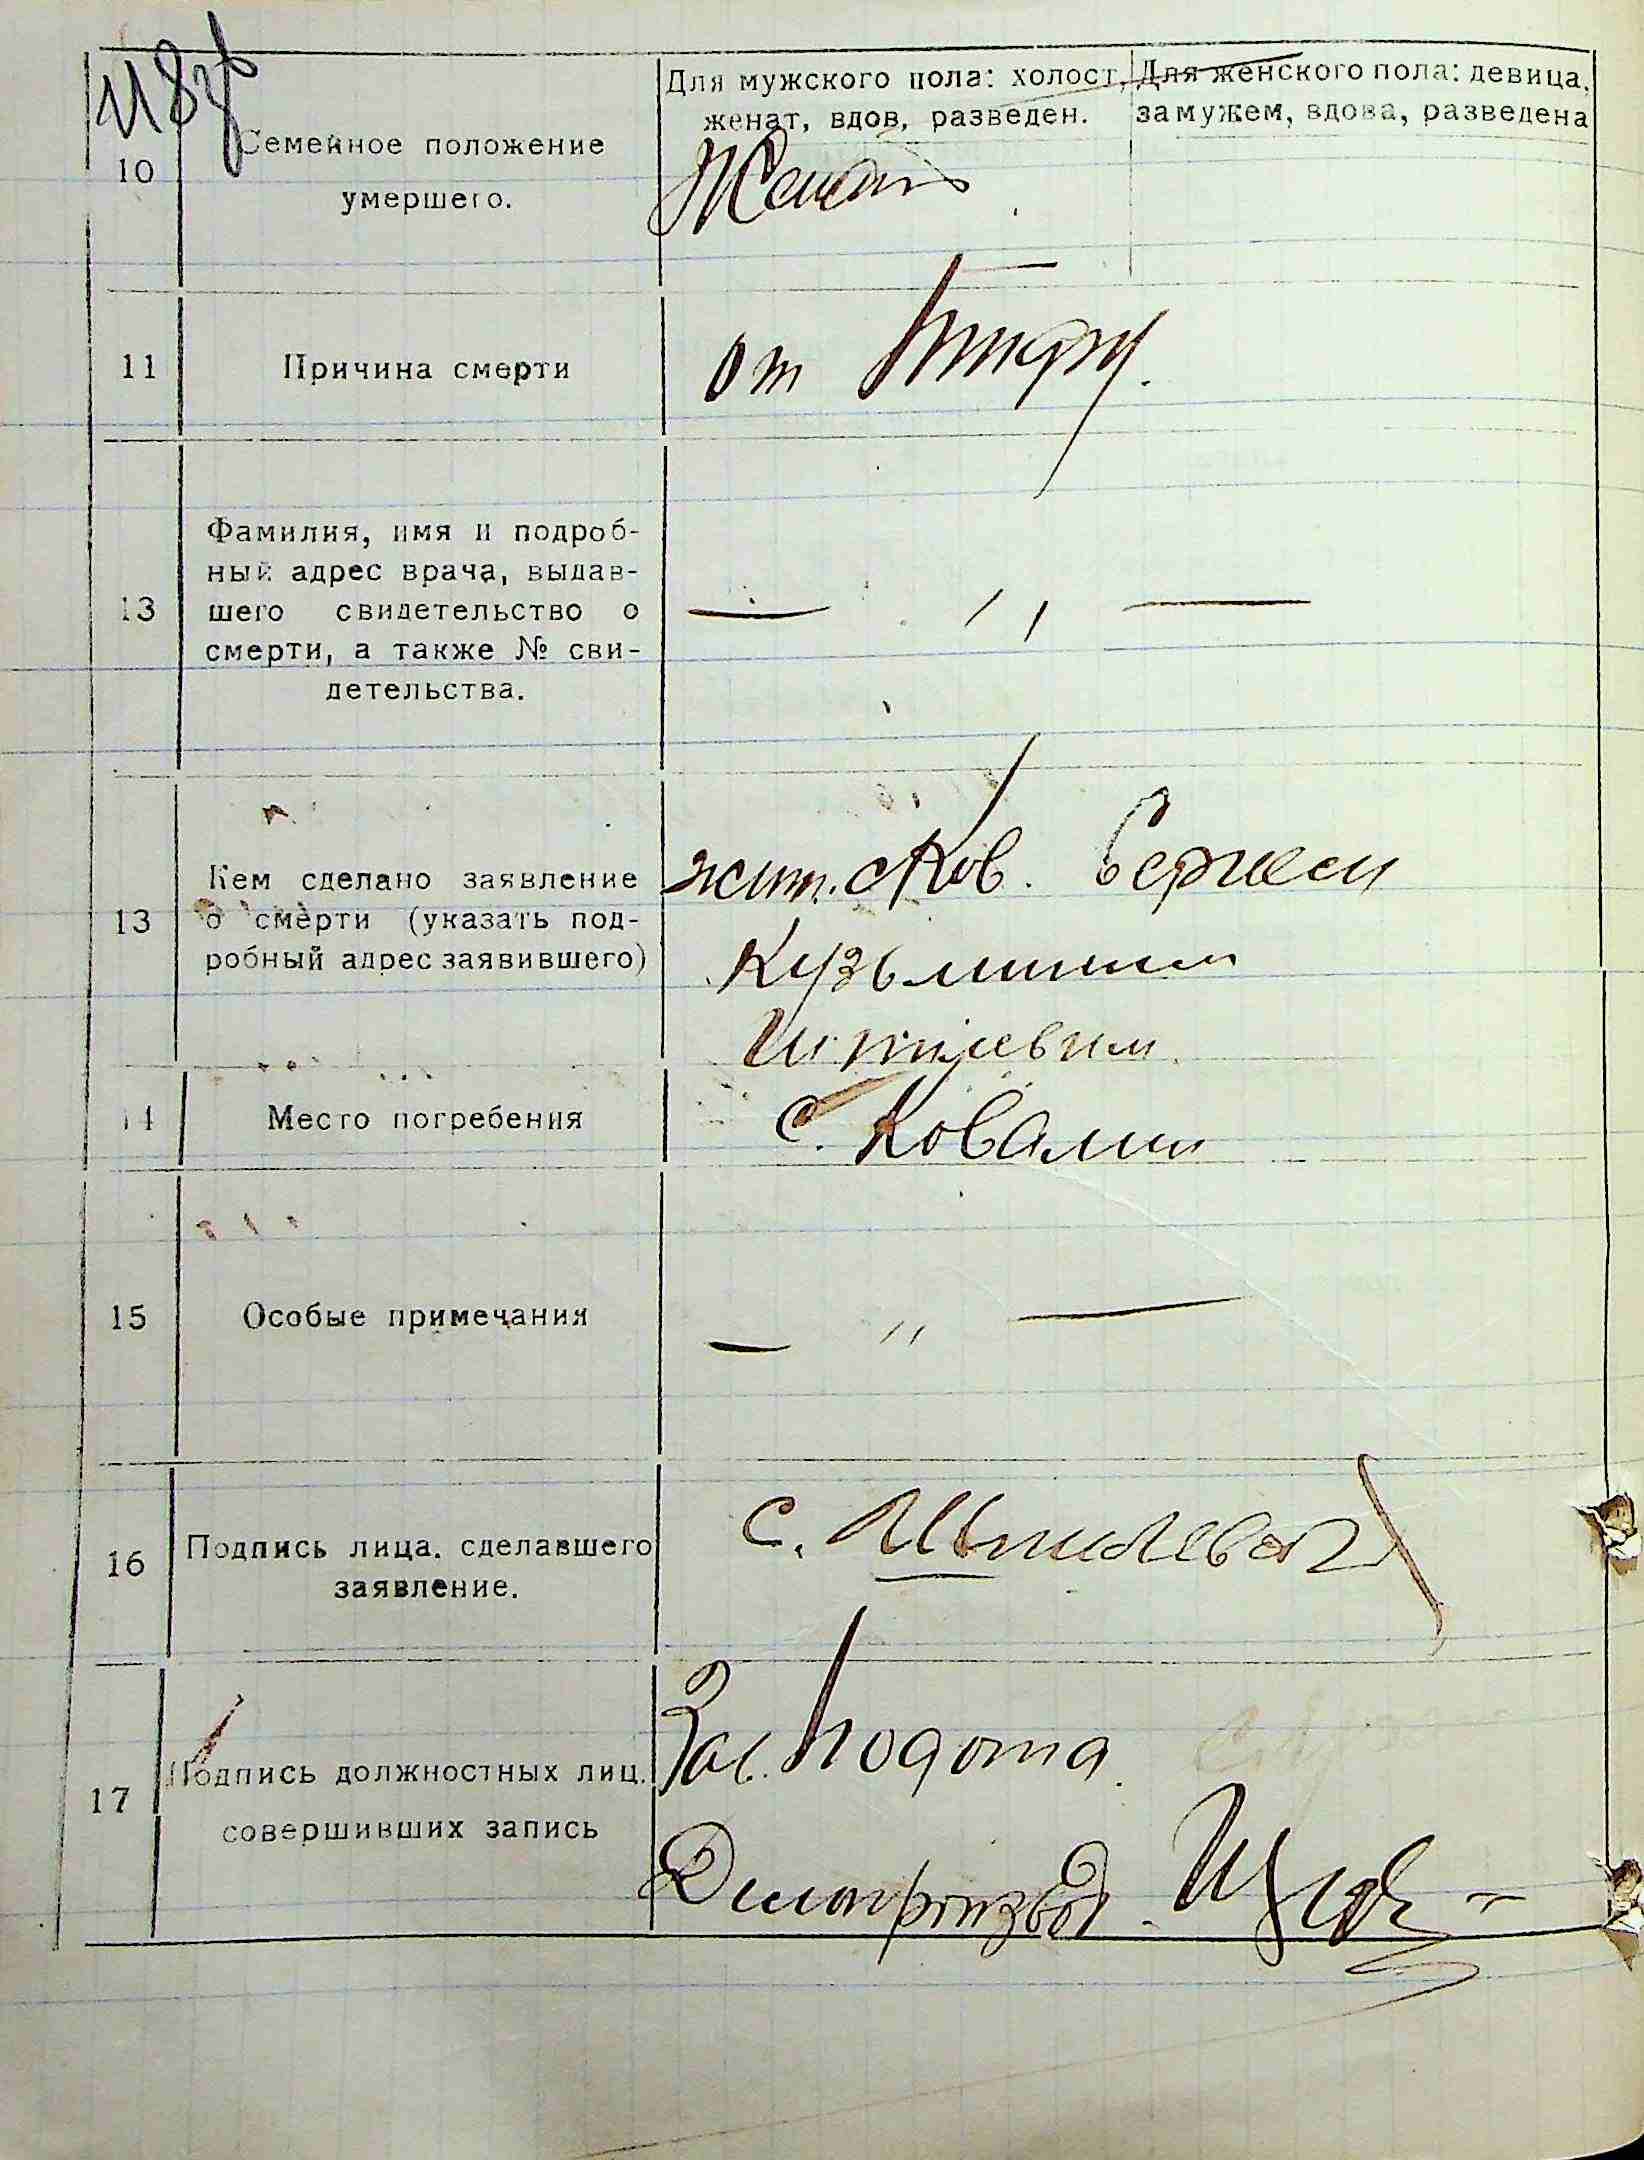 118
Для мужского пола: холост,
женат, вдов, разведен.
Для женского пола: девица,
замужем, вдова, разведена
10
Семейное положение
умершего.
Женат
11
Причина смерти
от
13
Фамилия, имя и подроб-
ный адрес врача, выдав-
шего свидетельство о
смерти, а также № сви-
детельства.
— " —
13
Кем сделано заявление
о смерти (указать под-
робный адрес заявившего)
жит. с Ков. Сергеем
Кузьмичем
14
Место погребения
с. Ковали
15
Особые примечания
— " —
16
Подпись лица, сделавшего
заявление.
С.
17
Подпись должностных лиц,
совершивших запись
Зав. Подота
Делопроизвод.